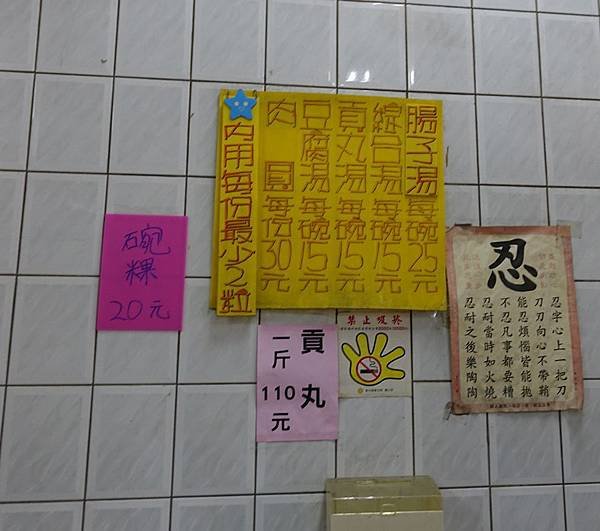 碗粿
20元
內用每份最少2粒
腸子湯每碗25元
綜合湯每碗15元
貢丸湯每碗15元
豆腐湯每碗15元
肉圓每份30元
貢丸
一斤110元
禁止吸菸
忍
忍字心上一把刀
刀刃向心不帶鞘
能忍煩惱皆能拋
不忍凡事都要糟
忍耐當時如火燒
忍耐之後樂陶陶